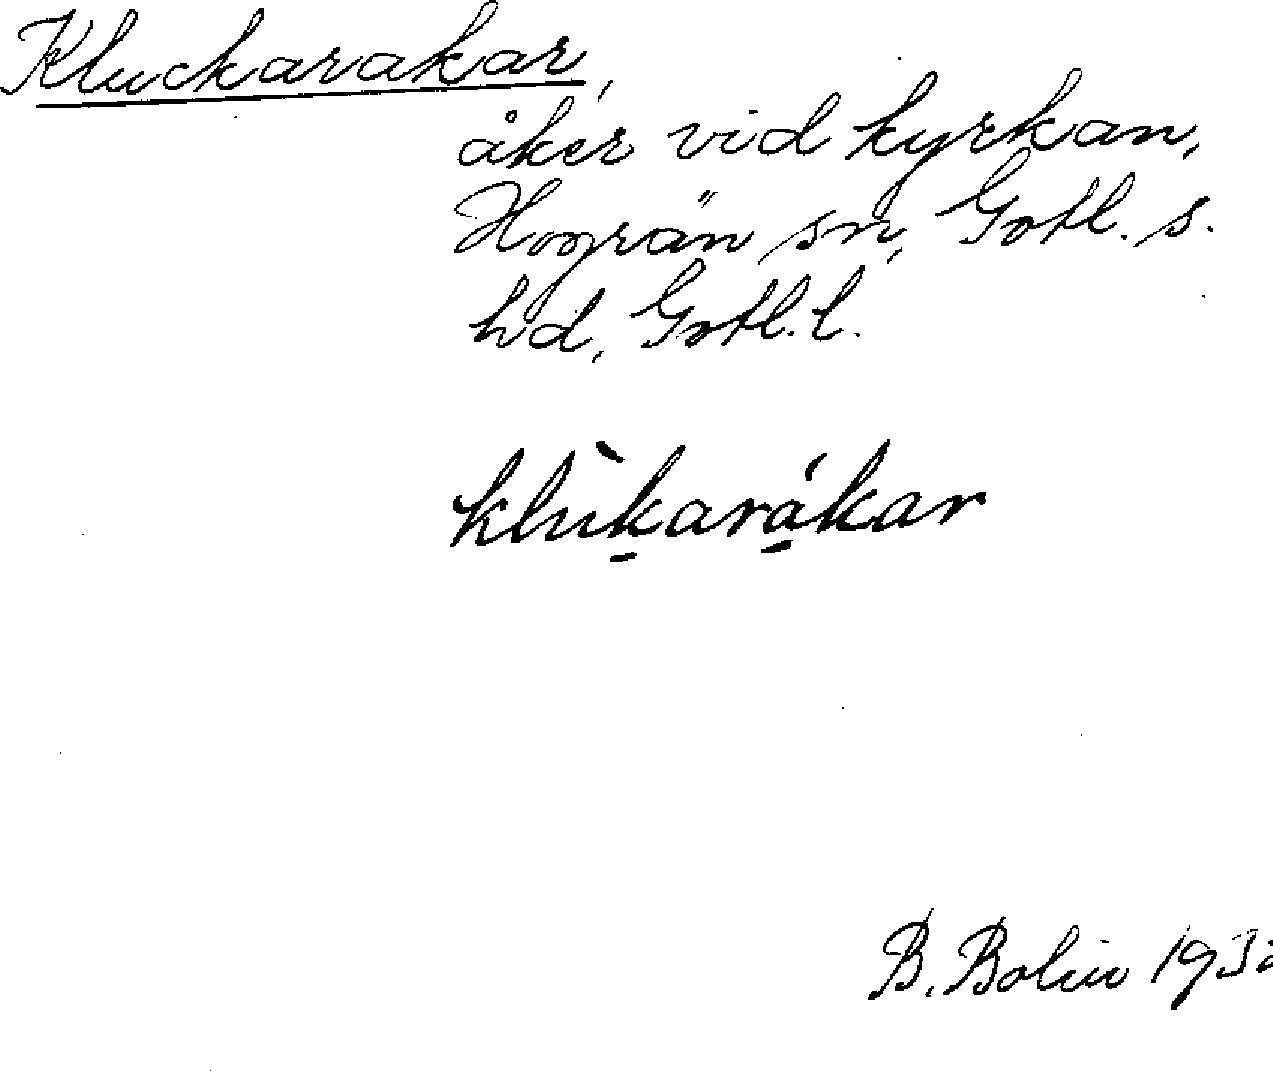 Kluckarakar,
åker vid kyrkan,
Hogrän sn, Gotl. s.
hd, Gotl. l.
klùk̠ará̠kar
B. Bolin